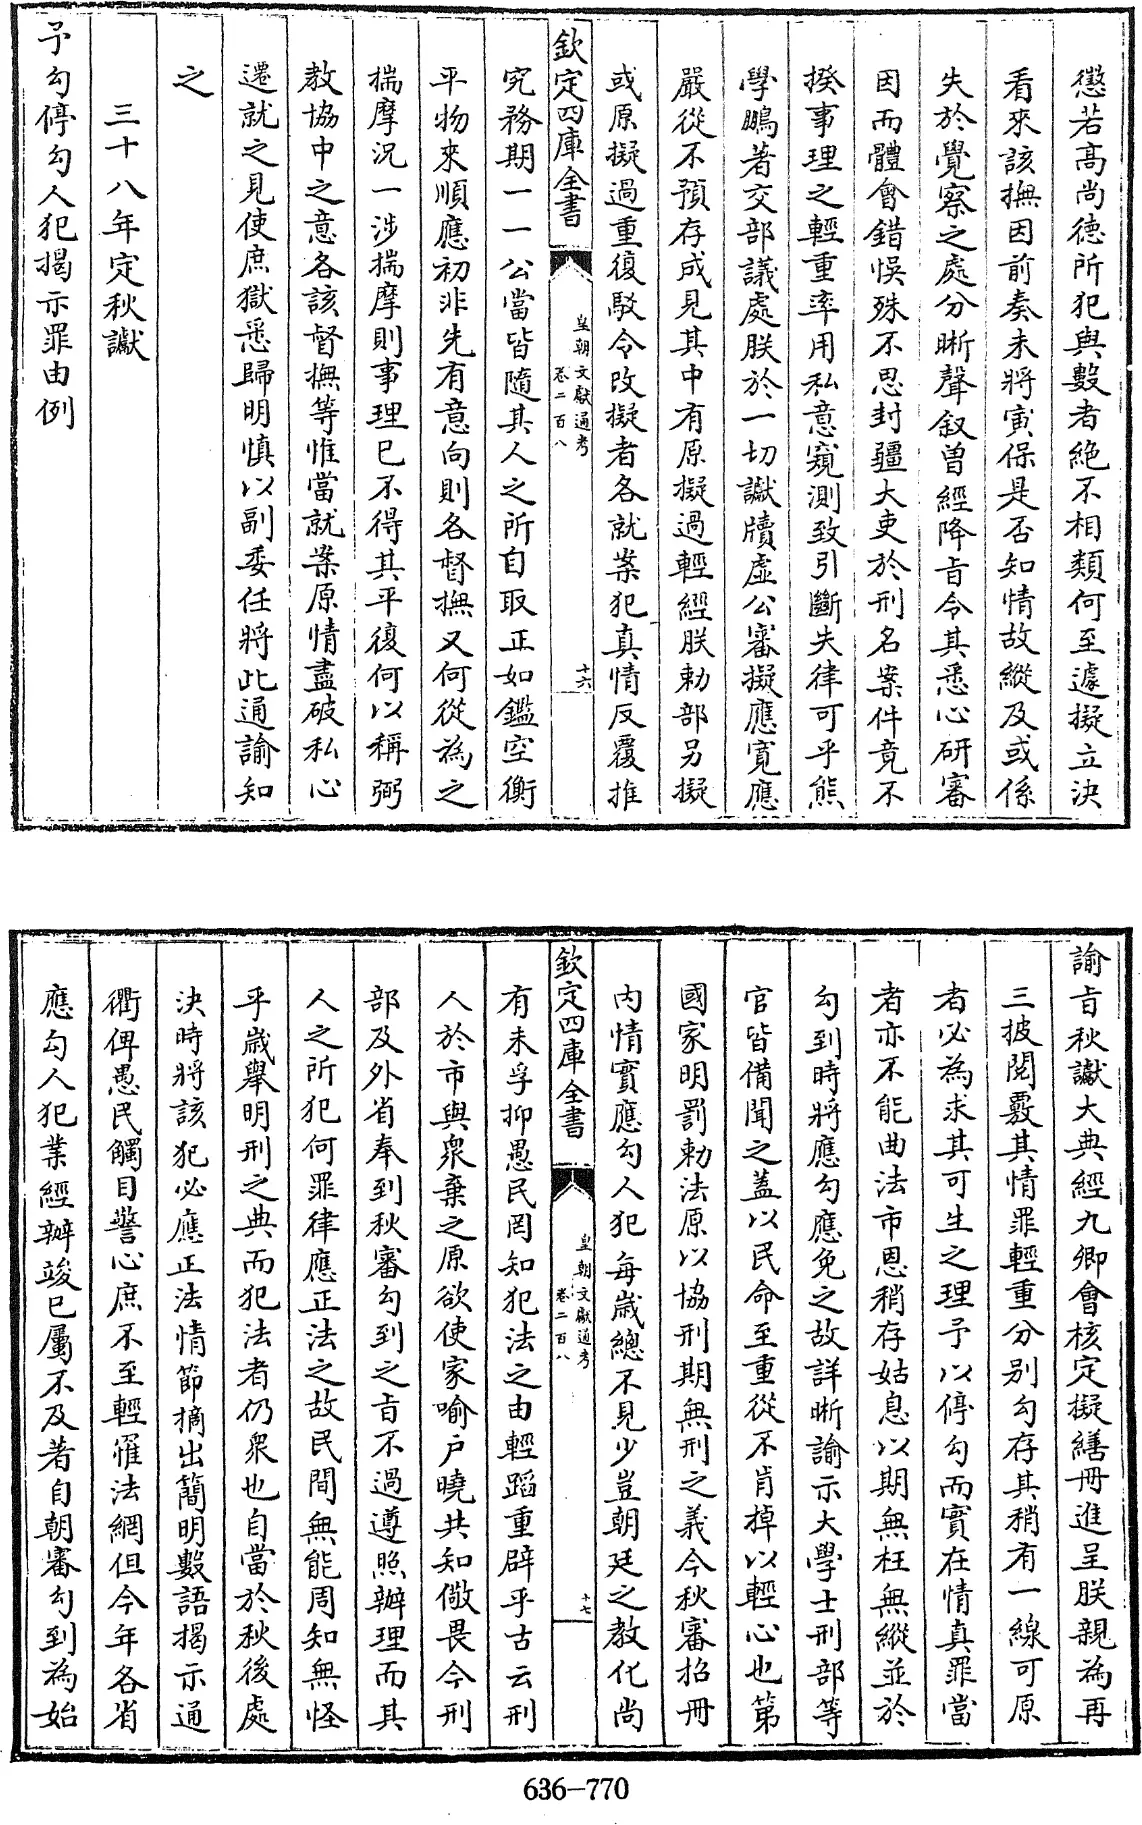 懲若高尚德所犯與數者絶不相類何至遽擬立決
看來該撫因前奏未將寅保是否知情故縱及或係
失於覺察之處分晰聲叙曾經降旨令其悉心研審
因而體會錯悞殊不思封疆大吏於刑名案件竟不
揆事理之輕重率用私意窺測致引斷失律可乎熊
學鵬著交部議處朕於一切讞牘虛公審擬應寛應
嚴從不預存成見其中有原擬過輕經朕勅部另擬
或原擬過重復駁令改擬者各就案犯真情反覆推
欽定四庫全書
皇朝文獻通考
卷二百八
十六
究務期一一公當皆隨其人之所自取正如鑑空衡
平物來順應初非先有意向則各督撫又何從為之
揣摩況一涉揣摩則事理已不得其平復何以稱弼
教協中之意各該督撫等惟當就案原情盡破私心
遷就之見使庶獄悉歸明慎以副委任將此通諭知
之
三十八年定秋讞
予勾停勾人犯揭示罪由例
諭旨秋讞大典經九卿會核定擬繕冊進呈朕親為再
三披閱覈其情罪輕重分別勾存其稍有一線可原
者必為求其可生之理予以停勾而實在情真罪當
者亦不能曲法市恩稍存姑息以期無枉無縱並於
勾到時將應勾應免之故詳晰諭示大學士刑部等
官皆備聞之蓋以民命至重從不肯掉以輕心也第
國家明罰勅法原以協刑期無刑之義今秋審招冊
内情實應勾人犯每歲總不見少豈朝廷之教化尚
欽定四庫全書
皇朝文獻通考
卷二百八
十七
有未孚抑愚民罔知犯法之由輕蹈重辟乎古云刑
人於市與衆棄之原欲使家喻户曉共知儆畏今刑
部及外省奉到秋審勾到之旨不過遵照辦理而其
人之所犯何罪律應正法之故民間無能周知無怪
乎歲舉明刑之典而犯法者仍衆也自當於秋後處
決時將該犯必應正法情節摘出簡明數語揭示通
衢俾愚民觸目警心庶不至輕罹法網但今年各省
應勾人犯業經辦竣已屬不及著自朝審勾到為始
636-770